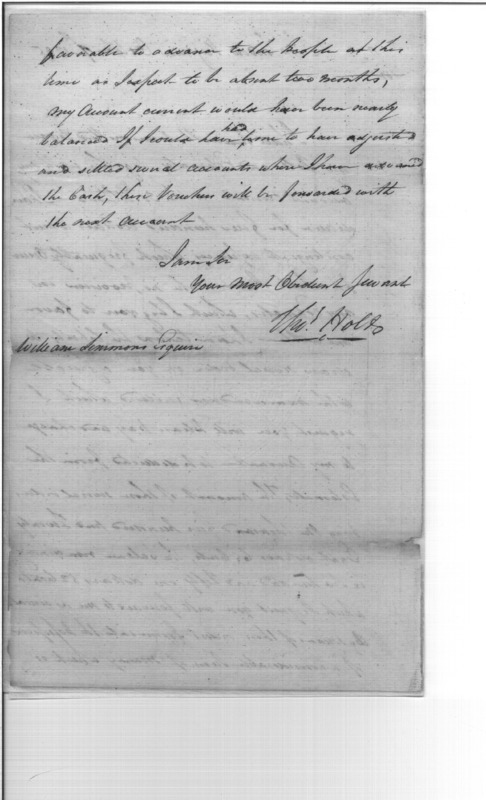 favorable to advance to the People at this
time as I expect to be absent two months,
my Account current would have been nearly
balanced If I could have had time to have adjusted
and settled several accounts where I have advanced
the Cash, these Vouchers will be forwarded with
the next account
I am Sir
Your most Obedient Servant
Thos. Holt
William Simmons Esquire